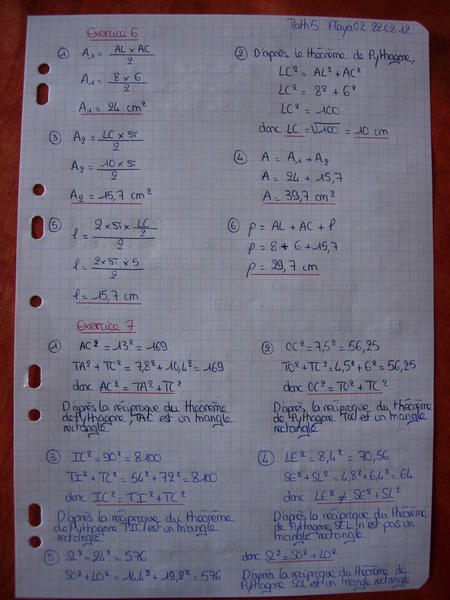 Exercice 6
22.02.12
① A₁ = AL × AC / 2
A₁ = 8 × 6 / 2
A₁ = 24 cm²
② D'après le théorème de Pythagore,
LC² = AL² + AC²
LC² = 8² + 6²
LC² = 100
donc LC = √100 = 10 cm
③ A₂ = LC × π / 2
A₂ = 10 × π / 2
A₂ = 15,7 cm²
④ A = A₁ + A₂
A = 24 + 15,7
A = 39,7 cm²
⑤ ℓ = 2 × π × LC/2 / 2
ℓ = 2 × π × 5 / 2
ℓ = 15,7 cm
⑥ p = AL + AC + ℓ
p = 8 + 6 + 15,7
p = 29,7 cm
Exercice 7
① AC² = 13² = 169
TA² + TC² = 7,8² + 10,4² = 169
donc AC² = TA² + TC²
D'après la réciproque du théorème
de Pythagore, TAC est un triangle
rectangle
② OC² = 7,5² = 56,25
TO² + TC² = 4,5² + 6² = 56,25
donc OC² = TO² + TC²
D'après la réciproque du théorème
de Pythagore TOC est un triangle
rectangle
③ IC² = 90² = 8100
TI² + TC² = 54² + 72² = 8100
donc IC² = TI² + TC²
D'après la réciproque du théorème
de Pythagore TIC est un triangle
rectangle
④ LE² = 8,4² = 70,56
SE² + SL² = 4,8² + 6,4² = 64
donc LE² ≠ SE² + SL²
D'après la réciproque du théorème
de Pythagore SEL n'est pas un
triangle rectangle
⑤ SL² = 24² = 576
SO² + LO² = 14,4² + 19,2² = 576
donc SL² = SO² + LO²
D'après la réciproque du théorème de
Pythagore SOL est un triangle rectangle